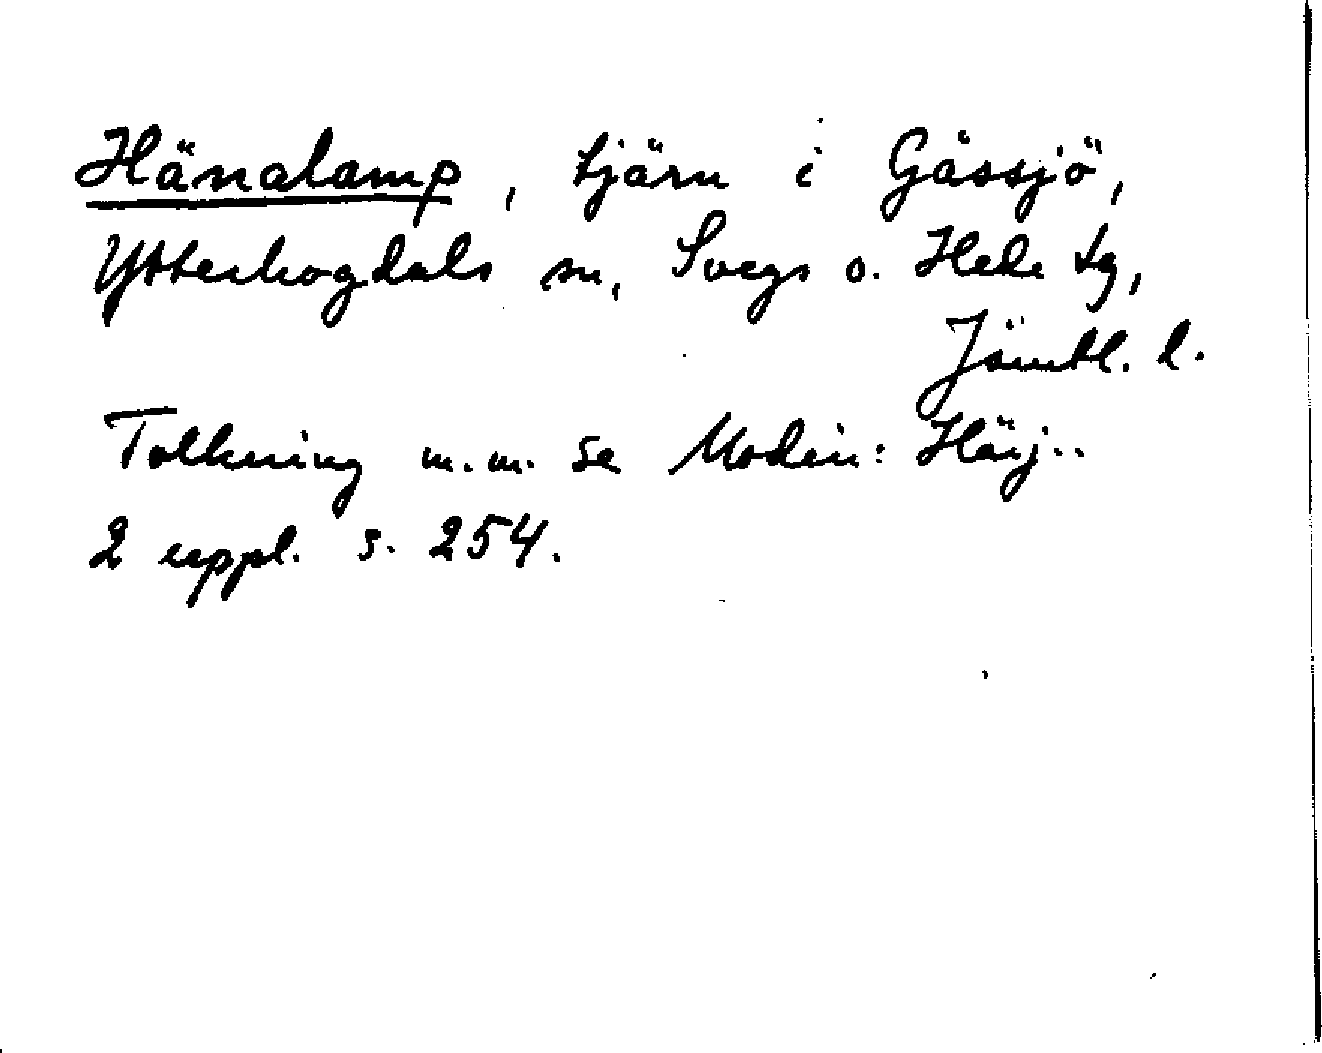 Hänalamp, tjärn i Gåssjö,
Ytterhogdals sn, Svegs o. Hede tg,
Jämtl. l.
Tolkning m.m. se Modin: Härj..
2 uppl. s. 254.